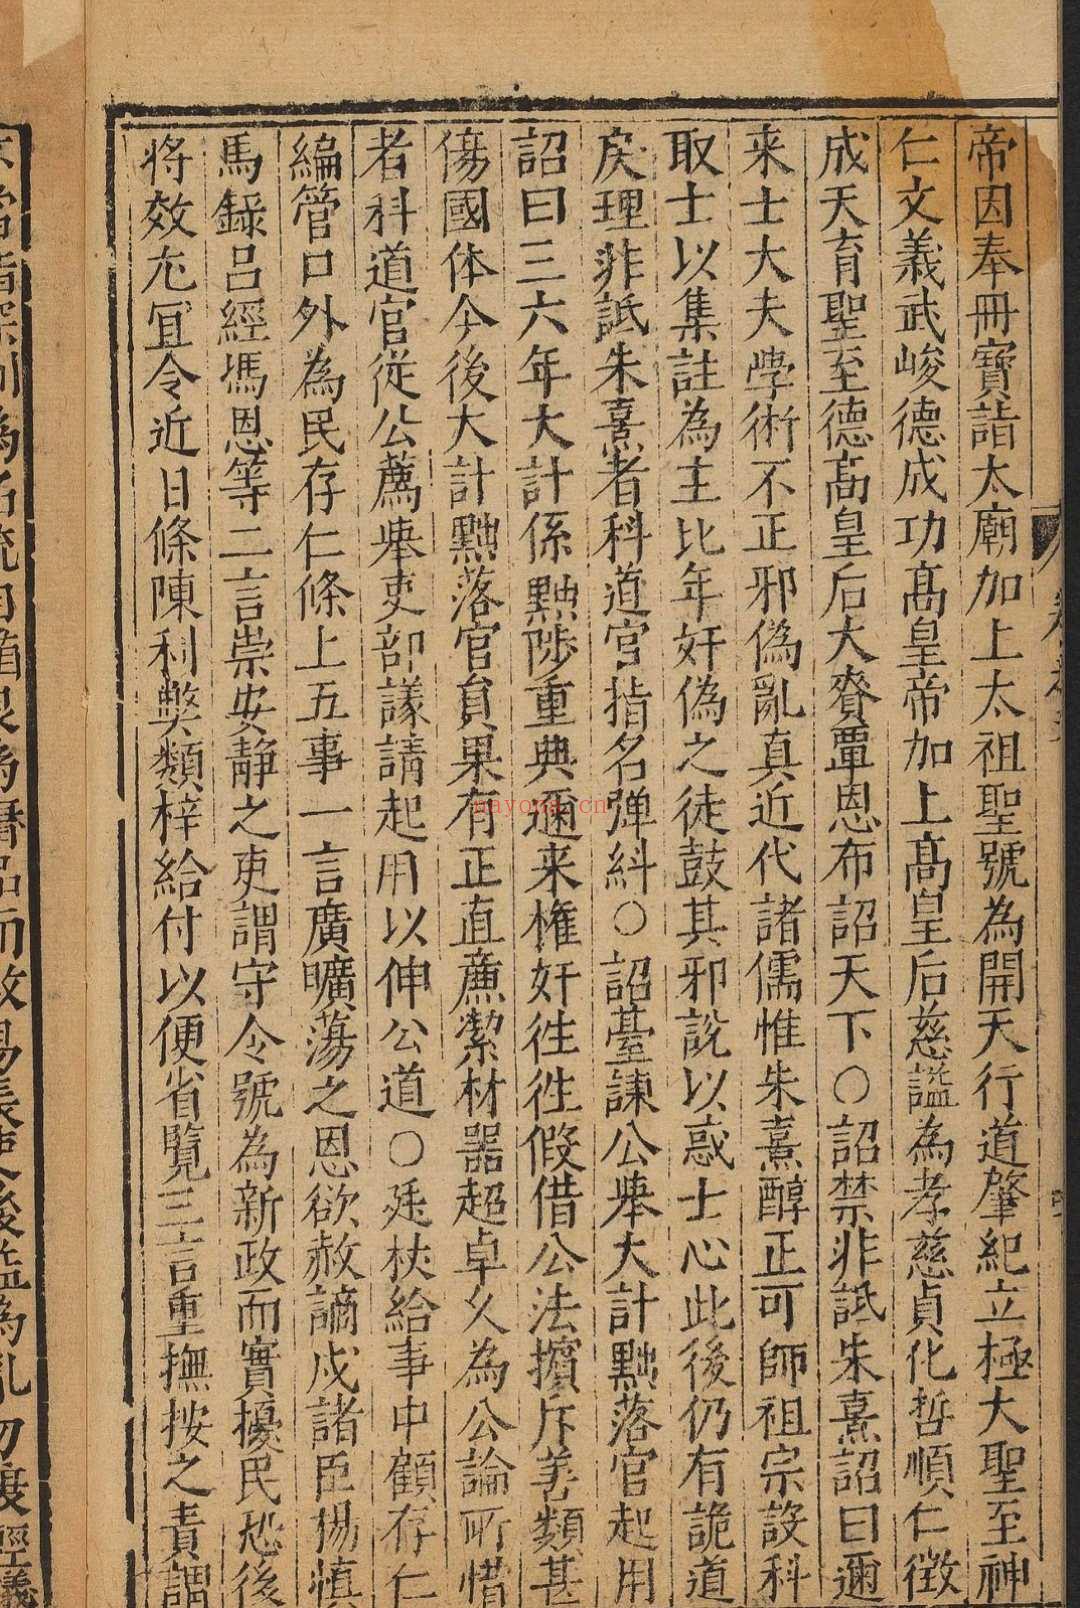 帝因奉冊寶詣太廟加上太祖聖號為開天行道肇紀立極大聖至神
仁文義武峻德成功髙皇帝加上髙皇后慈謚為孝慈貞化哲順仁徽
成天育聖至德髙皇后大賚覃恩布詔天下○詔禁非詆朱熹詔曰邇
来士大夫學術不正邪偽亂真近代諸儒惟朱熹醇正可師祖宗設科
取士以集註為主比年奸偽之徒鼓其邪說以惑士心此後仍有詭道
戾理非詆朱熹者科道官指名弹糾○詔臺諫公舉大計黜落官起用
詔曰三六年大計係黜陟重典邇来權奸徃徃假借公法擯斥善類甚
傷國体今後大計黜落官貟果有正直亷潔材噐超卓久為公論所惜
者科道官從公薦舉吏部議請起用以伸公道○廷杖給事中顧存仁
編管口外為民存仁條上五事一言廣曠蕩之恩欲赦謫戍諸臣楊慎
馬錄呂經馮恩等二言崇安靜之吏謂守令號為新政而實擾民恐後
将效尤冝令近日條陳利獘類梓給付以便省覽三言重撫按之責謂